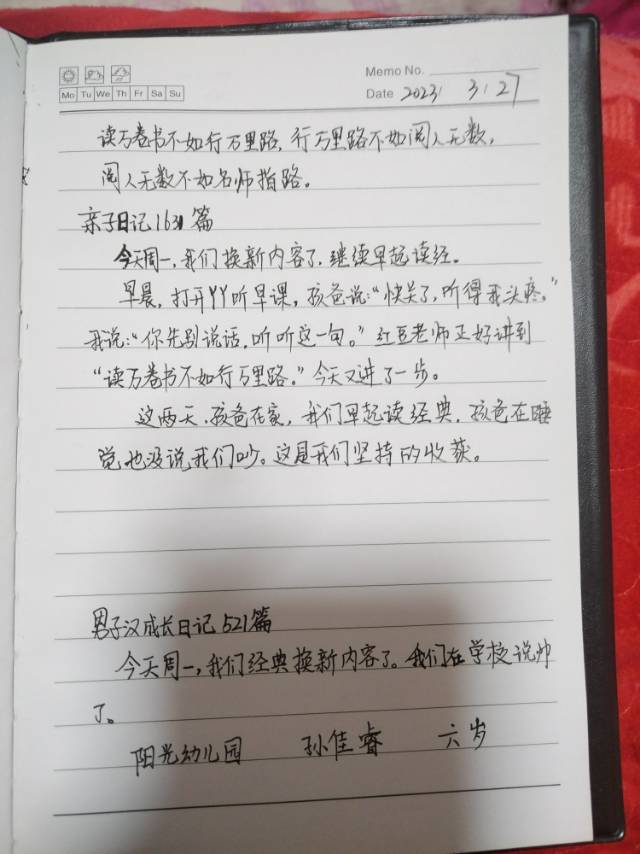 Memo No.
Mo Tu We Th Fr Sa Su
Date 2023 3.27
读万卷书不如行万里路，行万里路不如阅人无数，
阅人无数不如名师指路。
亲子日记1631篇
今天周一，我们换新内容了，继续早起读经。
早晨，打开YY听早课，孩爸说：“快关了，听得我头疼。”
我说：“你先别说话，听听这一句。”红豆老师正好讲到
“读万卷书不如行万里路。”今天又进了一步。
这两天，孩爸在家，我们早起读经典，孩爸在睡
觉也没说我们吵。这是我们坚持的收获。
男子汉成长日记521篇
今天周一，我们经典换新内容了。我们在学校说帅
了。
阳光幼儿园 孙佳睿 六岁